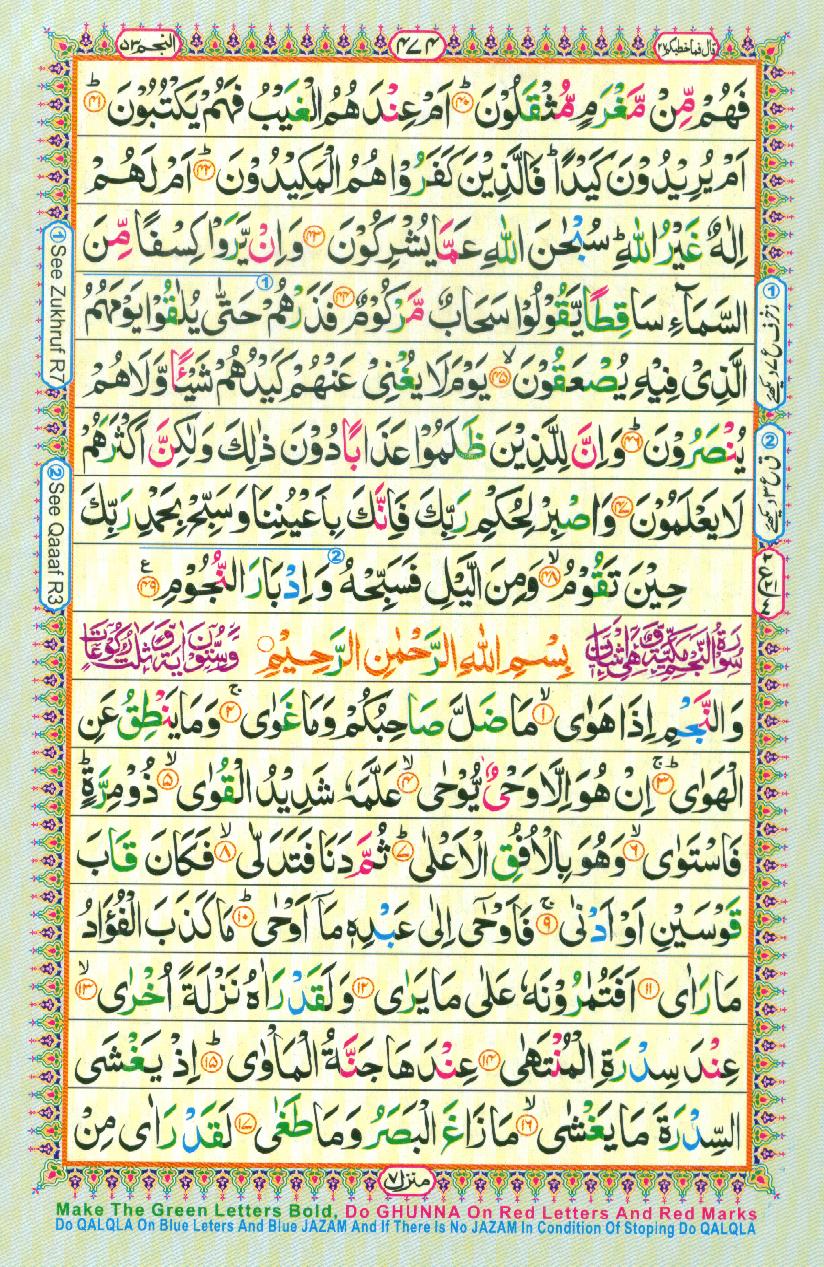 قال فما خطبكم ٢٧
٤٧٤
النجم ٥٣
فَهُمْ مِّنْ مَّغْرَمٍ مُّثْقَلُوْنَ ؕ‏﴿۴۰﴾ اَمْ عِنْدَهُمُ الْغَيْبُ فَهُمْ يَكْتُبُوْنَ ؕ‏﴿۴۱﴾
اَمْ يُرِيْدُوْنَ كَيْدًا ؕ فَالَّذِيْنَ كَفَرُوْا هُمُ الْمَكِيْدُوْنَ ؕ‏﴿۴۲﴾ اَمْ لَهُمْ
اِلٰهٌ غَيْرُ اللّٰهِ ؕ سُبْحٰنَ اللّٰهِ عَمَّا يُشْرِكُوْنَ ﴿۴۳﴾ وَاِنْ يَّرَوْا كِسْفًا مِّنَ
السَّمَآءِ سَاقِطًا يَّقُوْلُوْا سَحَابٌ مَّرْكُوْمٌ ﴿۴۴﴾ فَذَرْهُمْ حَتّٰى يُلٰقُوْا يَوْمَهُمُ
الَّذِىْ فِيْهِ يُصْعَقُوْنَ ۙ‏﴿۴۵﴾ يَوْمَ لَا يُغْنِىْ عَنْهُمْ كَيْدُهُمْ شَيْـًٔا وَّلَا هُمْ
يُنْصَرُوْنَ ؕ‏﴿۴۶﴾ وَاِنَّ لِلَّذِيْنَ ظَلَمُوْا عَذَابًا دُوْنَ ذٰلِكَ وَلٰكِنَّ اَكْثَرَهُمْ
لَا يَعْلَمُوْنَ ﴿۴۷﴾ وَاصْبِرْ لِحُكْمِ رَبِّكَ فَاِنَّكَ بِاَعْيُنِنَا وَسَبِّحْ بِحَمْدِ رَبِّكَ
حِيْنَ تَقُوْمُ ۙ‏﴿۴۸﴾ وَمِنَ الَّيْلِ فَسَبِّحْهُ وَاِدْبَارَ النُّجُوْمِ ﴿۴۹﴾ ع
سُوْرَةُ النَّجْمِ مَكِّيَّةٌ وَّهِىَ اثْنَتَانِ بِسْمِ اللّٰهِ الرَّحْمٰنِ الرَّحِيْمِ وَّسِتُّوْنَ اٰيَةً وَّثَلٰثُ رُكُوْعَاتٍ
وَالنَّجْمِ اِذَا هَوٰى ۙ‏﴿۱﴾ مَا ضَلَّ صَاحِبُكُمْ وَمَا غَوٰى ۚ‏﴿۲﴾ وَمَا يَنْطِقُ عَنِ
الْهَوٰى ؕ‏﴿۳﴾ اِنْ هُوَ اِلَّا وَحْىٌ يُّوْحٰى ۙ‏﴿۴﴾ عَلَّمَهٗ شَدِيْدُ الْقُوٰى ۙ‏﴿۵﴾ ذُوْ مِرَّةٍ ؕ
فَاسْتَوٰى ۙ‏﴿۶﴾ وَهُوَ بِالْاُفُقِ الْاَعْلٰى ؕ‏﴿۷﴾ ثُمَّ دَنَا فَتَدَلّٰى ۙ‏﴿۸﴾ فَكَانَ قَابَ
قَوْسَيْنِ اَوْ اَدْنٰى ۚ‏﴿۹﴾ فَاَوْحٰۤى اِلٰى عَبْدِهٖ مَاۤ اَوْحٰى ؕ‏﴿۱۰﴾ مَا كَذَبَ الْفُؤَادُ
مَا رَاٰى ﴿۱۱﴾ اَفَتُمٰرُوْنَهٗ عَلٰى مَا يَرٰى ﴿۱۲﴾ وَلَقَدْ رَاٰهُ نَزْلَةً اُخْرٰى ۙ‏﴿۱۳﴾
عِنْدَ سِدْرَةِ الْمُنْتَهٰى ﴿۱۴﴾ عِنْدَهَا جَنَّةُ الْمَاْوٰى ؕ‏﴿۱۵﴾ اِذْ يَغْشَى
السِّدْرَةَ مَا يَغْشٰى ۙ‏﴿۱۶﴾ مَا زَاغَ الْبَصَرُ وَمَا طَغٰى ﴿۱۷﴾ لَقَدْ رَاٰى مِنْ
① See Zukhruf R7
② See Qaaaf R3
① زخرف ع ۷ دیکھئے
② ق ع ۳ دیکھئے
منزل ۷
Make The Green Letters Bold, Do GHUNNA On Red Letters And Red Marks
Do QALQLA On Blue Leters And Blue JAZAM And If There Is No JAZAM In Condition Of Stoping Do QALQLA